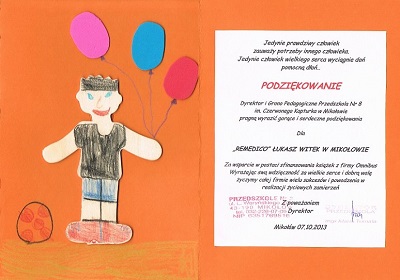 Jedynie prawdziwy człowiek
zauważy potrzeby innego człowieka.
Jedynie człowiek wielkiego serca wyciągnie dań
pomocną dłoń...
PODZIĘKOWANIE
Dyrektor i Grono Pedagogiczne Przedszkola Nr 8
im. Czerwonego Kapturka w Mikołowie
pragną wyrazić gorące i serdeczne podziękowania
Dla
„REMEDICO" ŁUKASZ WITEK W MIKOŁOWIE
Za wsparcie w postaci sfinansowania książek z firmy Omnibus
Wyrażając swą wdzięczność za wielkie serce i dobrą wolę
życzymy całej firmie wielu sukcesów i powodzenia w
realizacji życiowych zamierzeń
PRZEDSZKOLE Nr
Z poważaniem
43-190 MIKOŁ
Dyrektor
Mikołów 07.10.2013